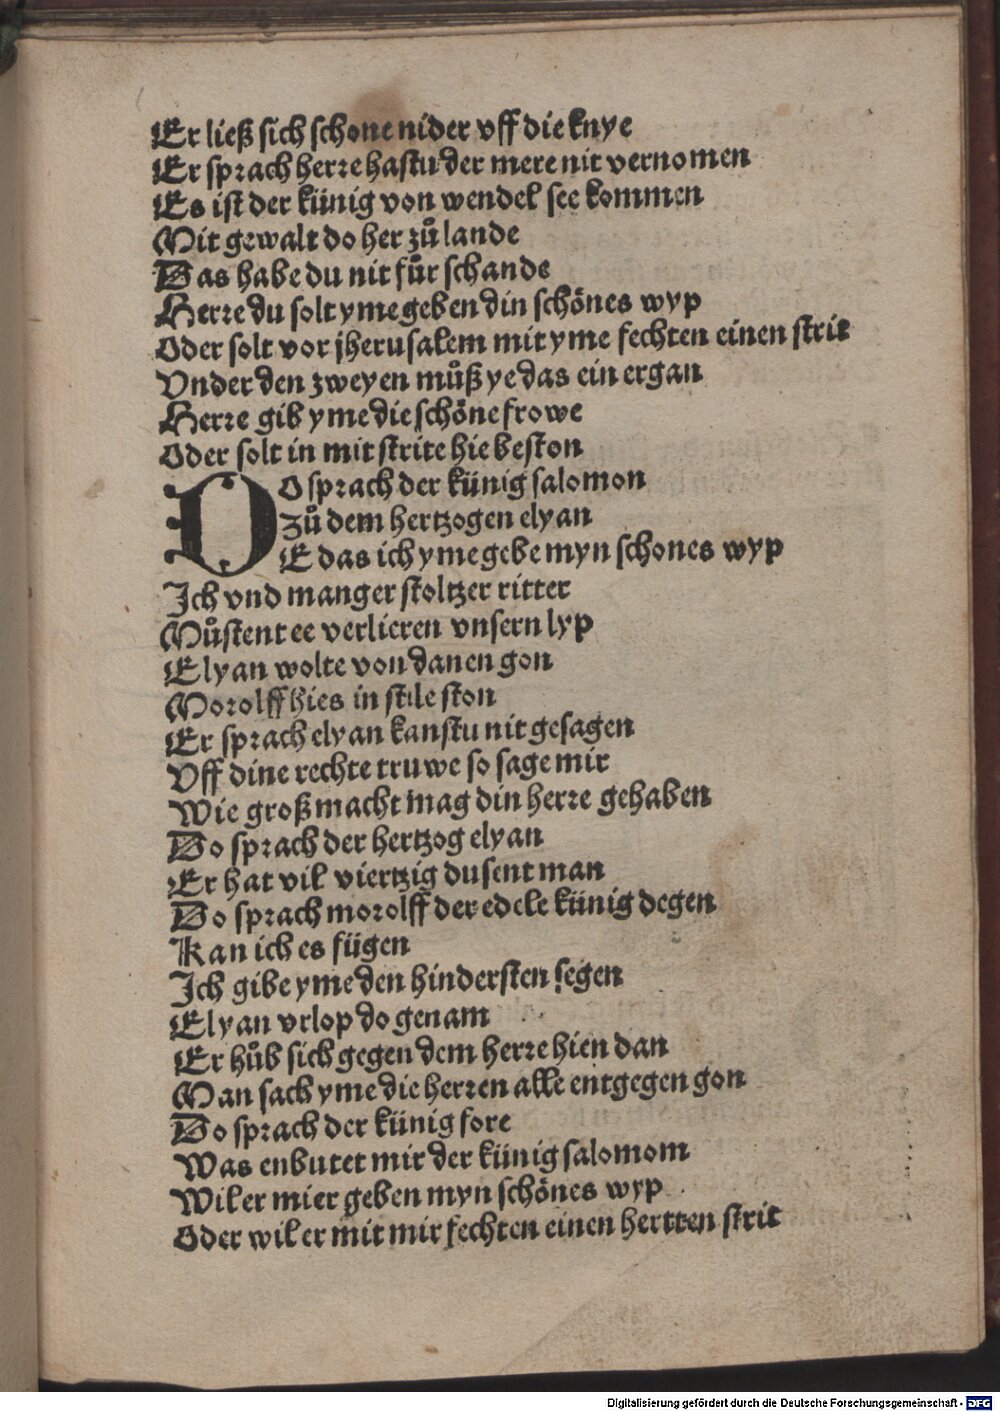 Er ließ sich schone nider vff die knye
Er sprach herre hastu der mere nit vernomen
Es ist der künig von wendel see kommen
Mit gewalt do her zů lande
Das habe du nit für schande
Herre du solt yme geben din schönes wyp
Oder solt vor jherusalem mit yme fechten einen strit
Vnder den zweyen můß ye das ein ergan
Herre gib yme die schöne frowe
Oder solt in mit strite hie beston
DO sprach der künig salomon
Zů dem hertzogen elyan
E das ich yme gebe myn schones wyp
Ich vnd manger stoltzer ritter
Můstent ee verlieren vnsern lyp
Elyan wolte von danen gon
Morolff hies in stile ston
Er sprach elyan kanstu nit gesagen
Vff dine rechte truwe so sage mir
Wie groß macht mag din herre gehaben
Do sprach der hertzog elyan
Er hat vil viertzig dusent man
Do sprach morolff der edele künig degen
Kan ich es fügen
Ich gibe yme den hindersten segen
Elyan vrlop do genam
Er hůb sich gegen dem herre hien dan
Man sach yme die herren alle entgegen gon
Do sprach der künig fore
Was enbutet mir der künig salomom
Wil er mier geben myn schönes wyp
Oder wil er mit mir fechten einen hertten strit
Digitalisierung gefördert durch die Deutsche Forschungsgemeinschaft - DFG